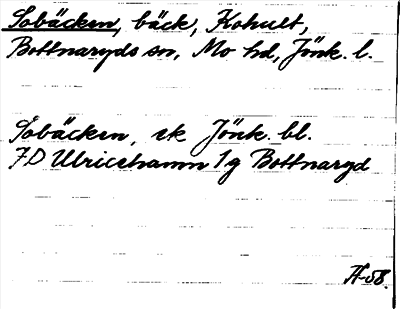 Sobäcken, bäck, Kohult,
Bottnaryds sn, Mo hd, Jönk. l.
Sobäcken, ek Jönk. bl.
7D Ulricehamn 1g Bottnaryd